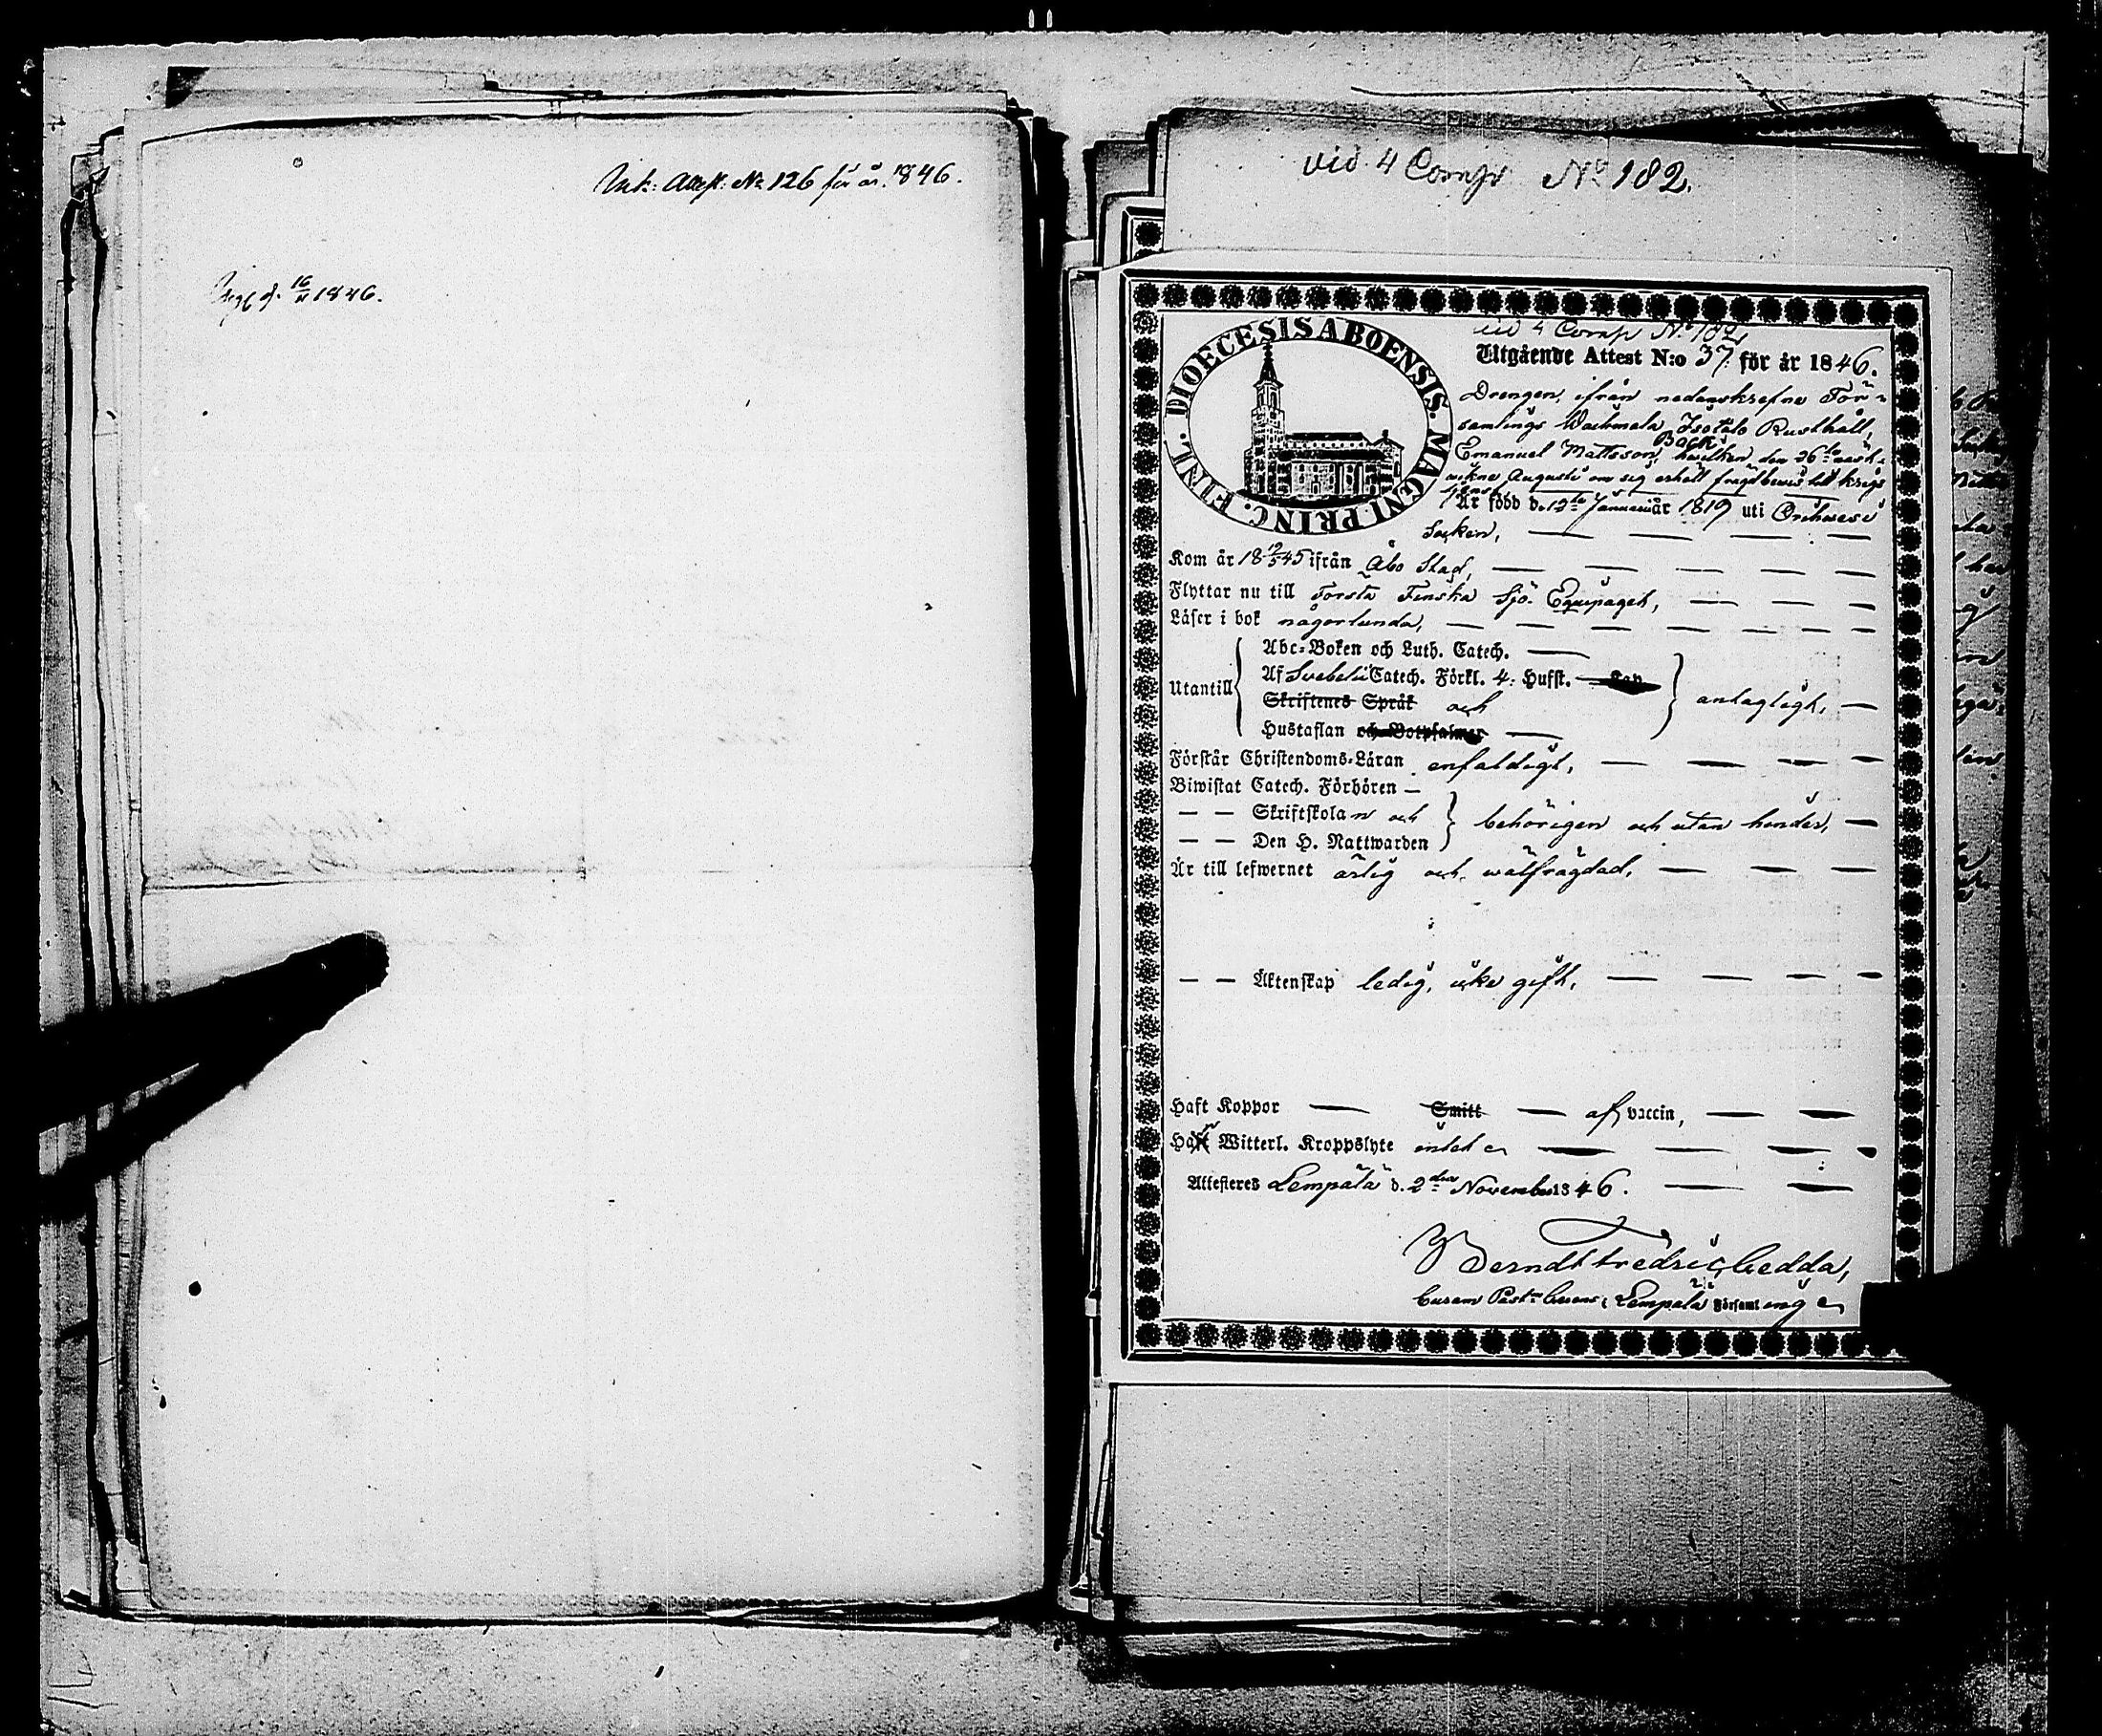 Ink: Attest: No 126 för år 1846.
16/11 1846.
vid 4 Comp No 182.
DIOECESIS ABOENSIS. MAGNI PRINC. FINL.
vid 4 Comp No 182
Utgående Attest N:o 37 för år 1846.
Drengen, ifrån nedanskrefne För-
samlings Isotalo Rusthåll,
Back
Emanuel Mattsson, hwilken den 26te
Augusti om sig erhöll frägdbewis till krigs
tjenst
Är född d. 12te Januarii år 1819 uti Orihwesi
Socken,
Kom år 18 19/5 45 ifrån Åbo Stad,
Flyttar nu till Första Finska Sjö-Equipaget,
Läser i bok någorlunda,
Utantill
Abc-Boken och Luth. Catech.
Af Svebelii Catech. Förkl. 4: Hufst. Kap
Skriftenes Språk och
Hustaflan och Botpsalmer
antagligt,
Förstår Christendoms-Läran enfaldigt,
Biwistat Catech. Förhören
— — Skriftskolan och
— — Den H. Nattwarden
behörigen och utan hinder,
Är till lefwernet ärlig och wälfrägdad,
— — Äktenskap ledig, icke gift,
Haft Koppor — Smitt — af vaccin,
Har Witterl. Kroppslyte intet
Attesteres Lempälä d. 2dra November 1846.
Berndt Fredric Gedda,
Curam Past: Gerens i Lempälä Församling